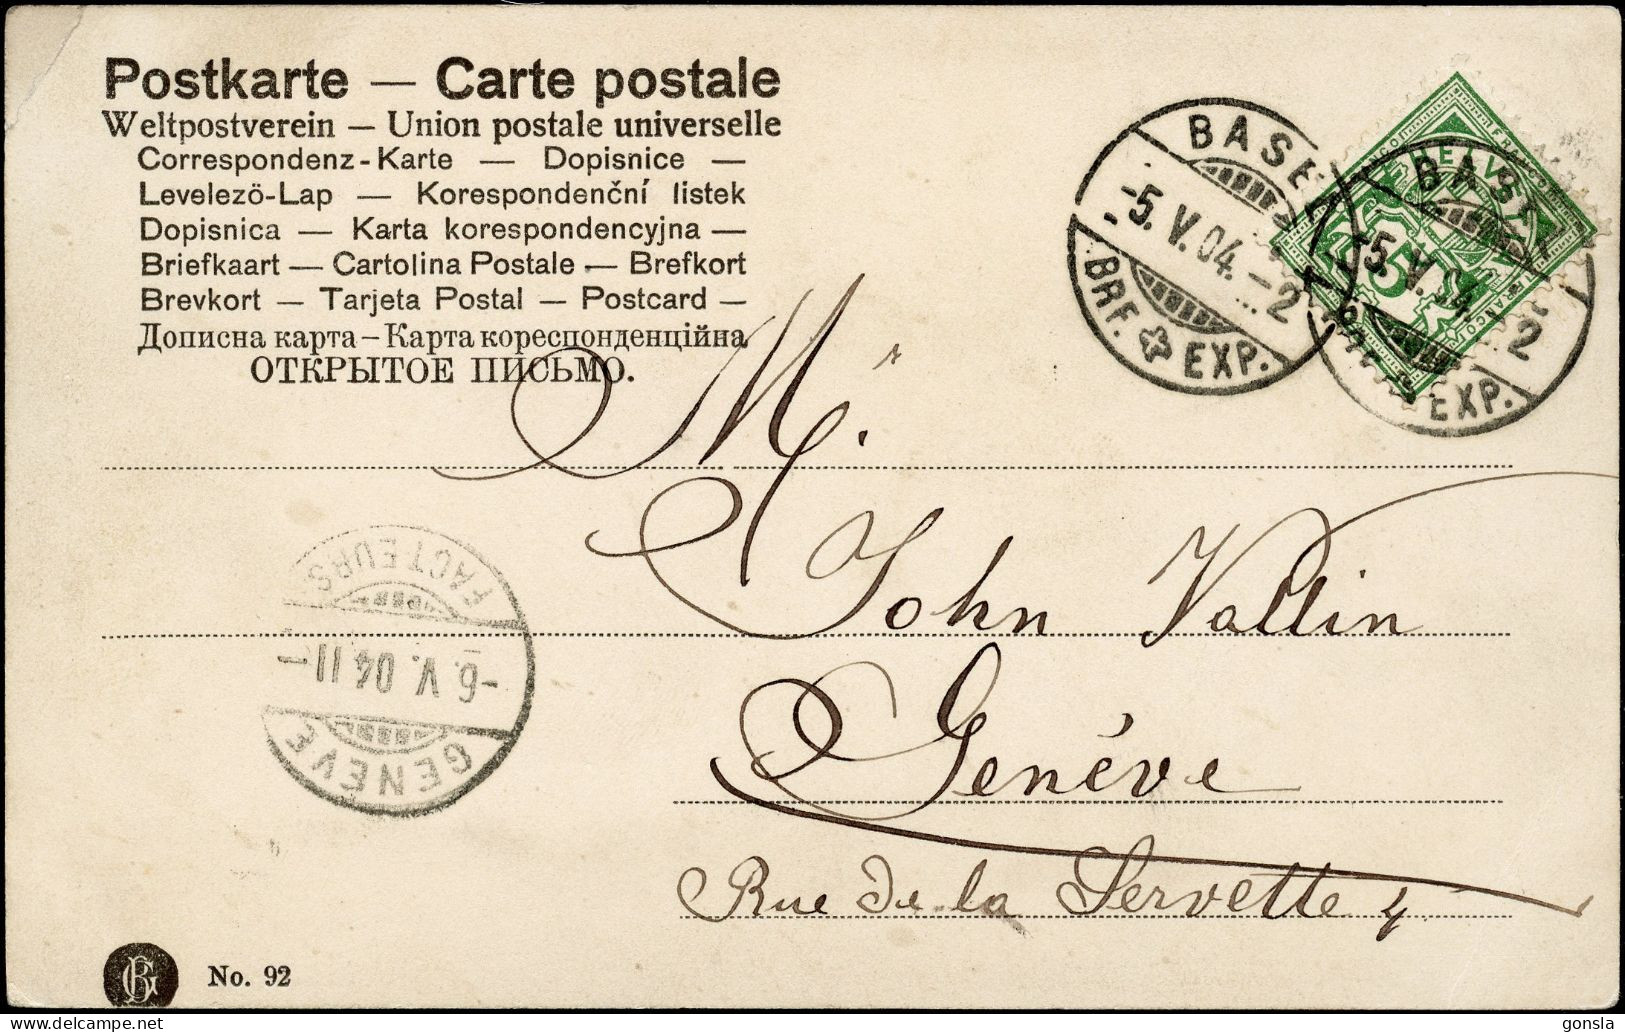 Postkarte — Carte postale
Weltpostverein — Union postale universelle
Correspondenz-Karte — Dopisnice —
Levelező-Lap — Korespondenční listek
Dopisnica — Karta korespondencyjna —
Briefkaart — Cartolina Postale — Brefkort
Brevkort — Tarjeta Postal — Postcard —
Дописна карта — Карта кореспонденційна
ОТКРЫТОЕ ПИСЬМО.
BASEL
-5.V.04.-2
BRF. EXP.
BASEL
-5.V.04.-2
EXP.
HELVETIA
FRANCO
FRANCO
5
M.r
John Vallin
Genéve
Rue de la Servette 4
FACTEURS
-6.V.04 11-
GENEVE
BG
No. 92
gonsla